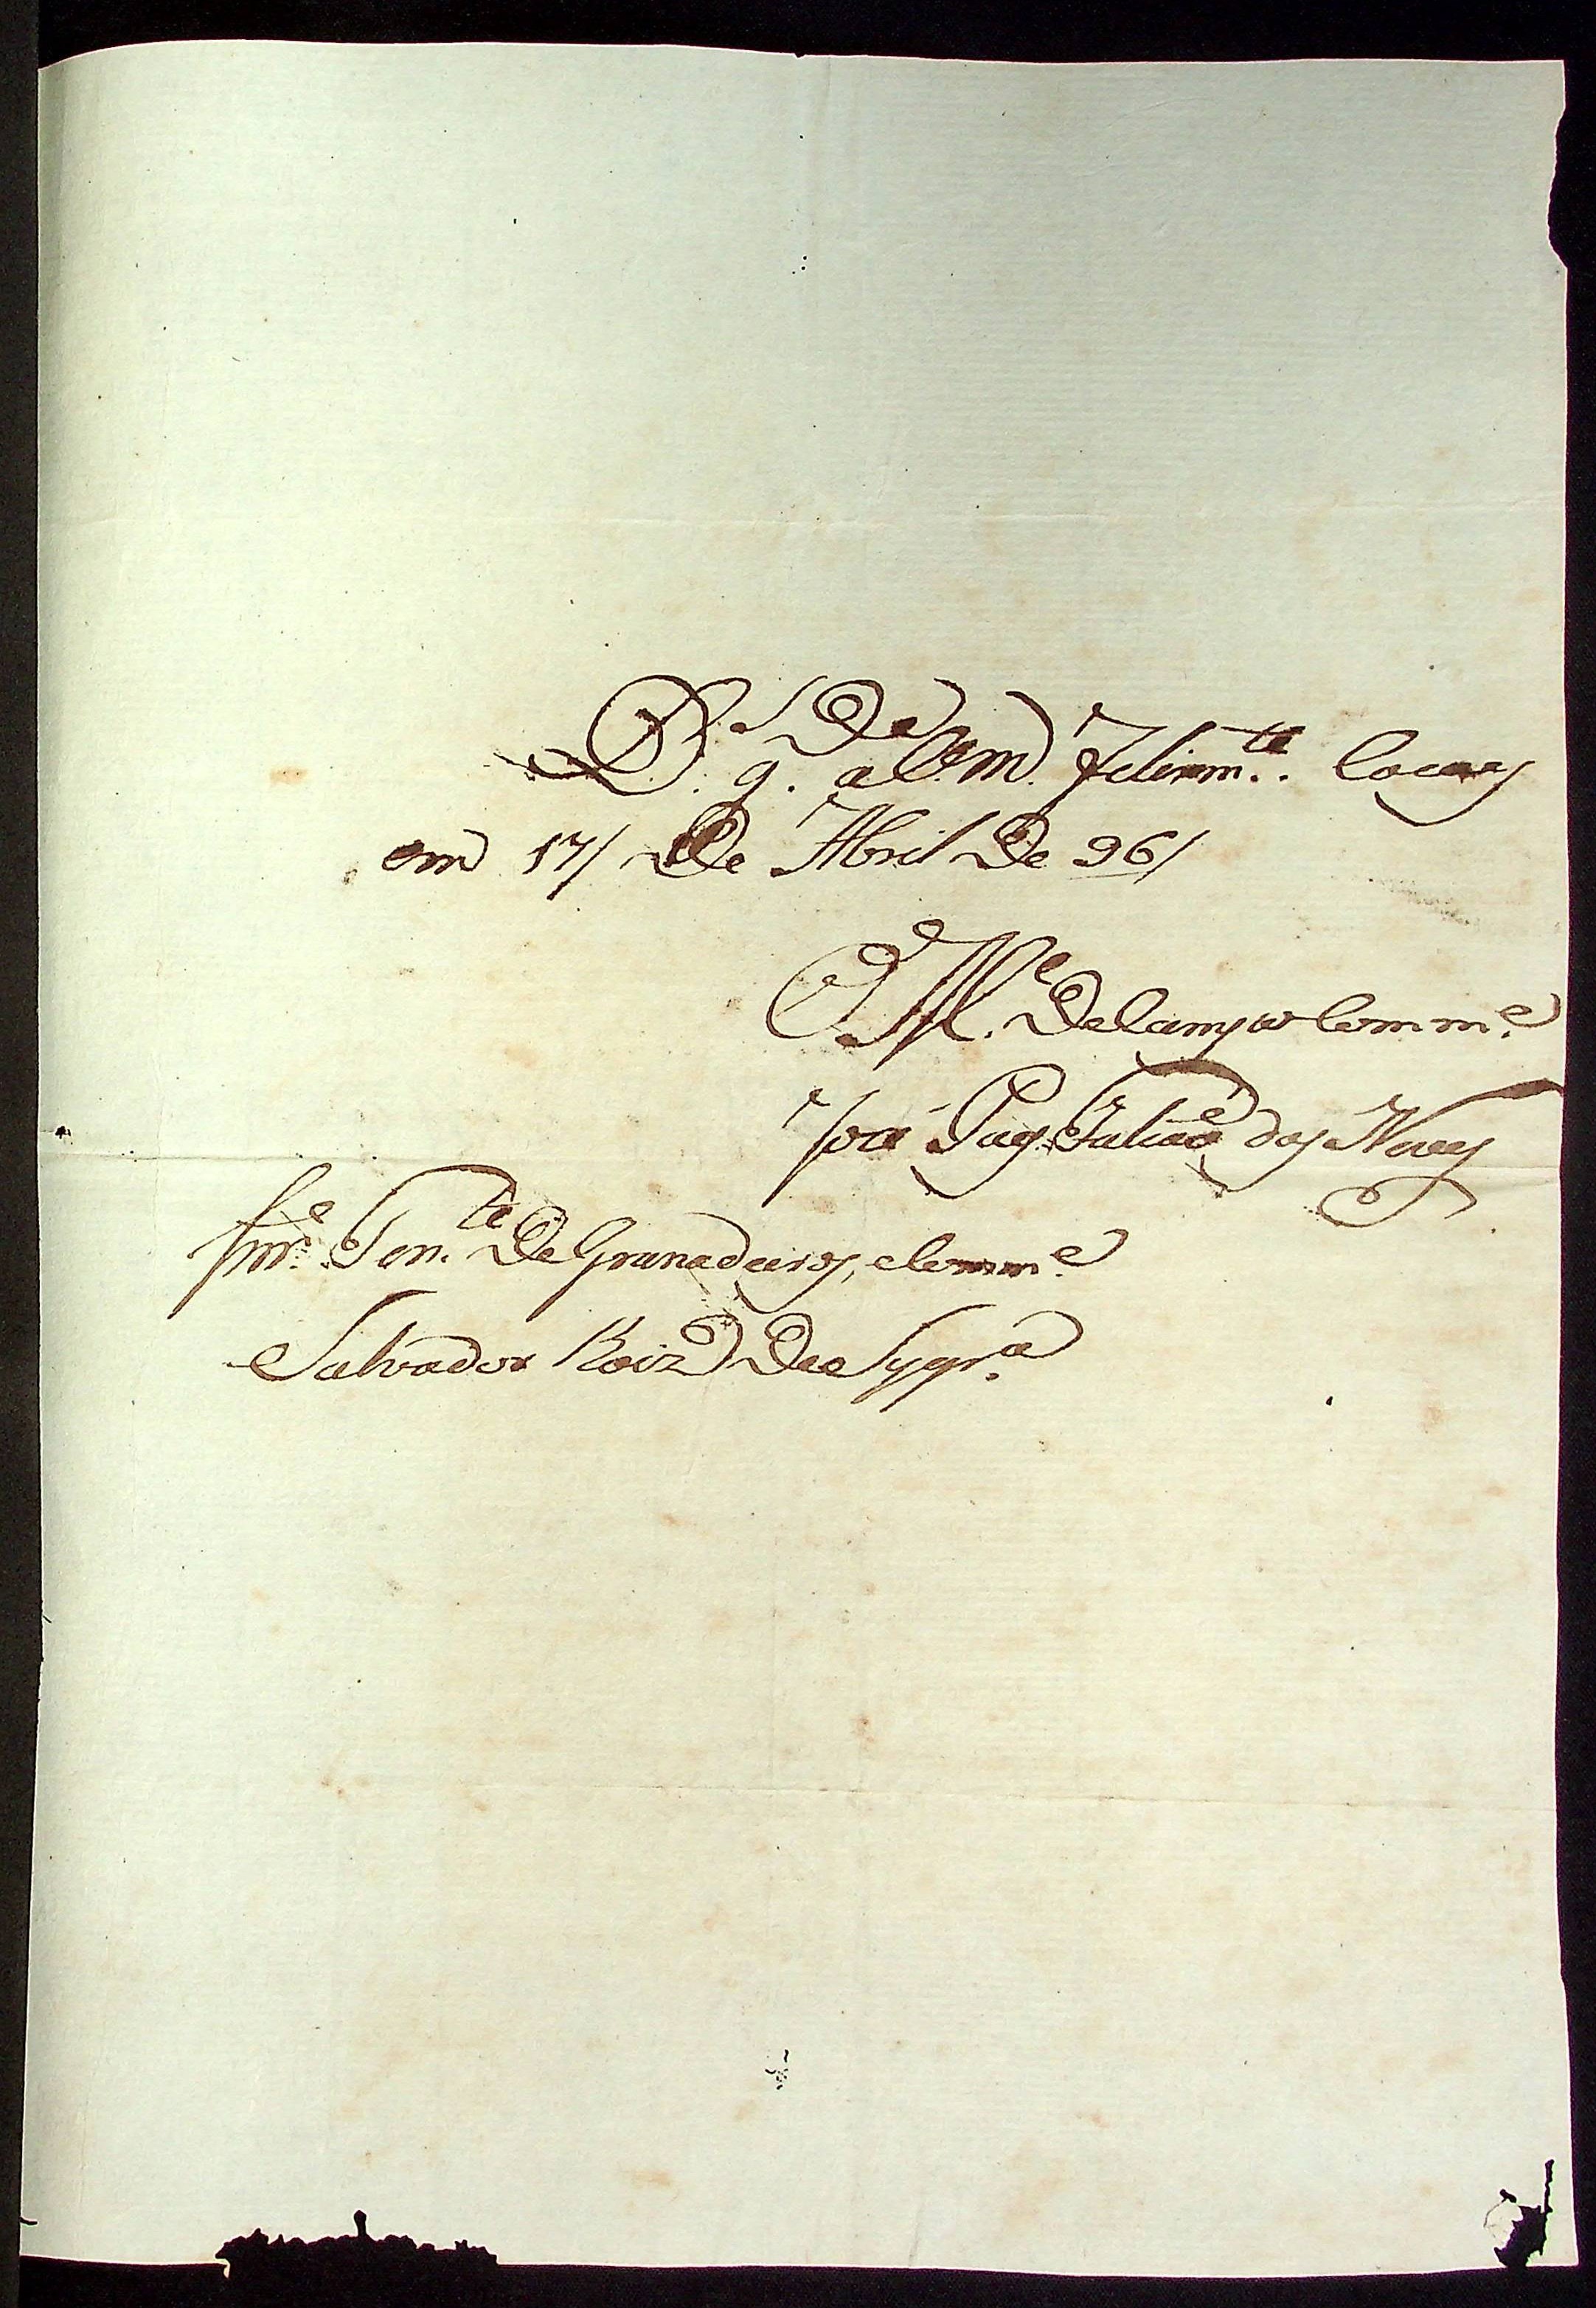 D.s g.de a Vm. felizm.te Cocaes
em 17/ De Abril De 96/
O M.e De Campo Comm.e
Joze Julião dos Neves
Snr.e Ten.te De Granadeiros, e Comm.e
Salvador Roiz De Syqr.a